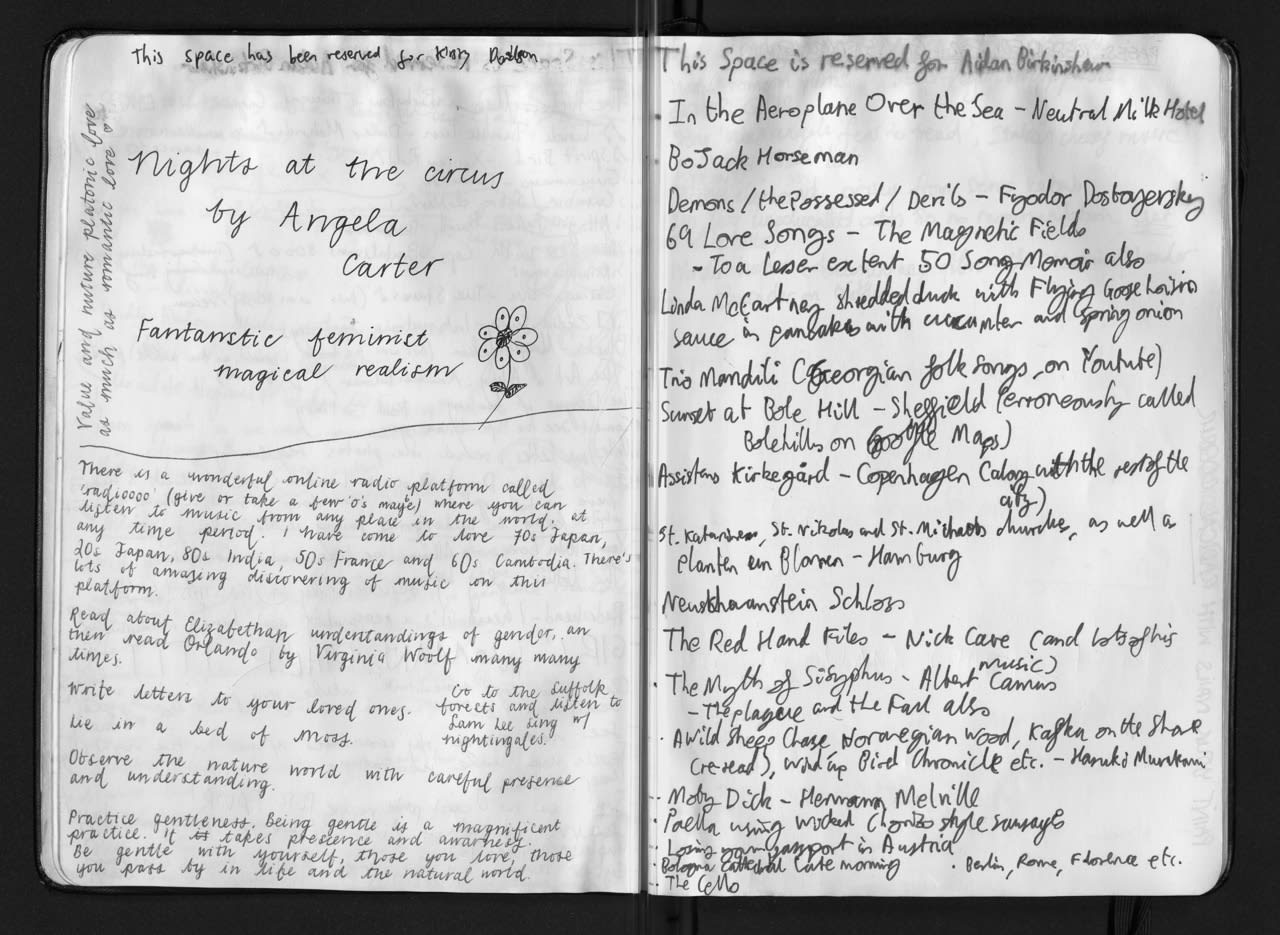 This space has been reserved for Kirsty
Value and nuture platonic love
as much as romantic love ♡
Nights at the circus
by Angela
Carter
Fantanstic feminist
magical realism
There is a wonderful online radio platform called
'radioooo' (give or take a few 'o's maybe) where you can
listen to music from any place in the world, at
any time period. I have come to love 70s Japan,
20s Japan, 80s India, 50s France and 60s Cambodia. There's
lots of amazing discovering of music on this
platform.
Read about Elizabethan understandings of gender, an
then read Orlando by Virginia Woolf many many
times.
Write letters to your loved ones.
Lie in a bed of moss.
Go to the Suffolk
forests and listen to
Sam Lee sing w/
nightingales.
Observe the nature world with careful presence
and understanding.
Practice gentleness. Being gentle is a magnificent
practice. It takes prescence and awarness.
Be gentle with yourself, those you love, those
you pass by in life and the natural world.
This Space is reserved for Aidan Birkinshaw
In the Aeroplane Over the Sea - Neutral Milk Hotel
BoJack Horseman
Demons / the Possessed / Devils - Fyodor Dostoyevsky
69 Love Songs - The Magnetic Fields
- To a lesser extent 50 Song Memoir also
Linda McCartney shredded duck with Flying Goose hoisin
sauce in pancakes with cucumber and spring onion
Trio Mandili (Georgian folk songs on Youtube)
Sunset at Bole Hill - Sheffield (erroneously called
Bolehills on Google Maps)
Assistens Kirkegård - Copenhagen (along with the rest of the
city)
St. Katarinen, St. Nikolas and St. Michaels churches, as well a
Planten un Blomen - Hamburg
Neuschwanstein Schloss
The Red Hand Files - Nick Cave (and lots of his
music)
· The Myth of Sisyphus - Albert Camus
- The plague and the Fall also
· A Wild Sheep Chase, Norwegian Wood, Kafka on the Shore
(re-read), Wind up Bird Chronicle etc. - Haruki Murakami
· Moby Dick - Hermann Melville
· Paella using wicked Chorizo style sausages
· Losing your passport in Austria
· Bologna Cathedral late morning
· Berlin, Rome, Florence etc.
· The Cello